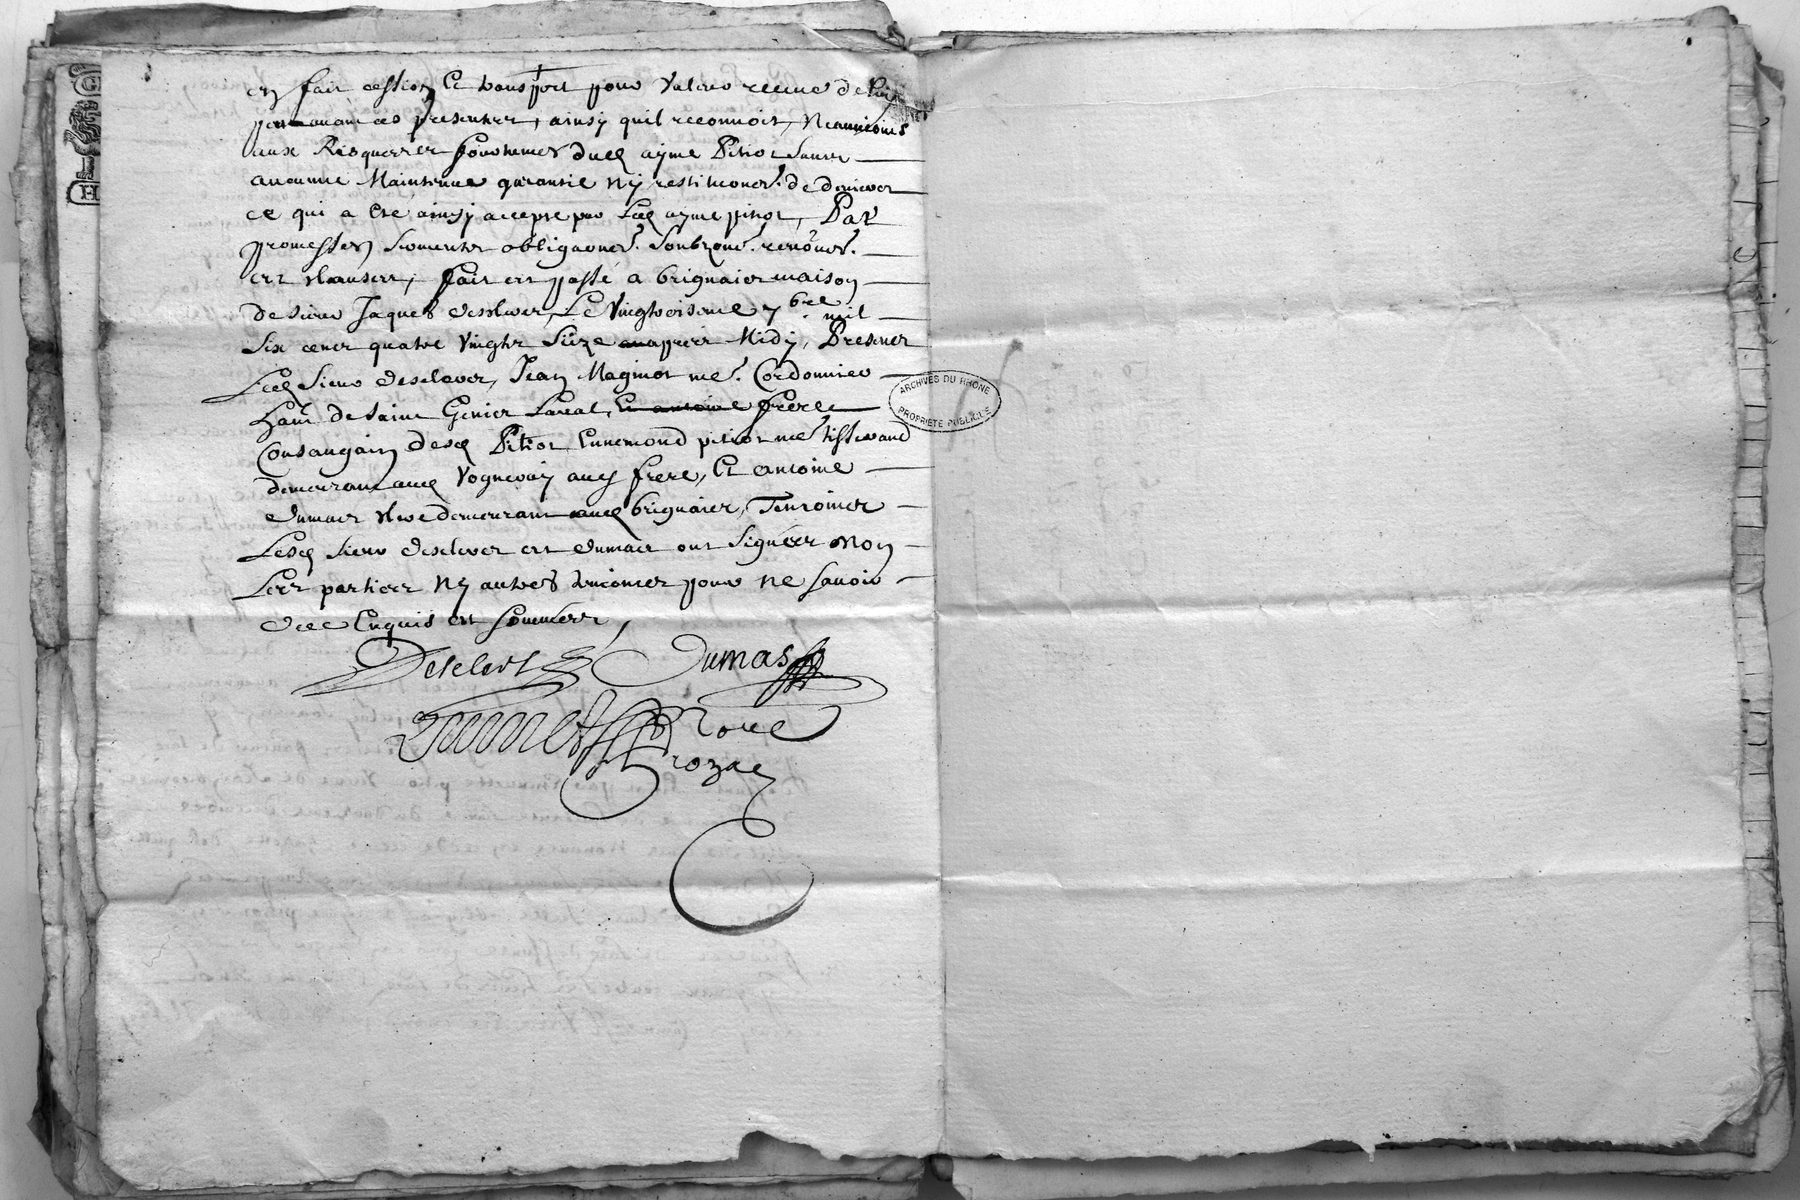 en fait cession Et transport pour valeur receue de luy
avant ces presentes, ainsy quil reconnoit, Neanmoins
aux Risques et fortunes dud ayme Pitiot sans
aucunne Maintenue garantie Ny restituon. de deniers
ce qui a eté ainsy accepte par Led ayme pitiot, Par
promesses sermentz obligaonts. renons.
et clauses, fait et passé a brignais maison
de sieur Jaques Desclers, Le Vingtroisieme 7bre mil
Six cents quatre Vingtz Seize apprés Midy, Presents
Led Sieur Desclers, Jean Maginot me. Cordonnier
hant de Saint Genis Laval, Et antoine frere
Consanguin dud Pitiot Ennemond pitiot me tisserand
demeurant aud Vogneray aussy frere, Et antoine
Dumas clerc demeurant aud brignais, Temoins
Lesd Sieur Desclers et Dumas ont Signéz Non
Les parties Ny autres temoins pour ne Savoir
de ce Enquis et sommés,
Desclers Dumas
ARCHIVES DU RHÔNE
PROPRIETE PUBLIQUE